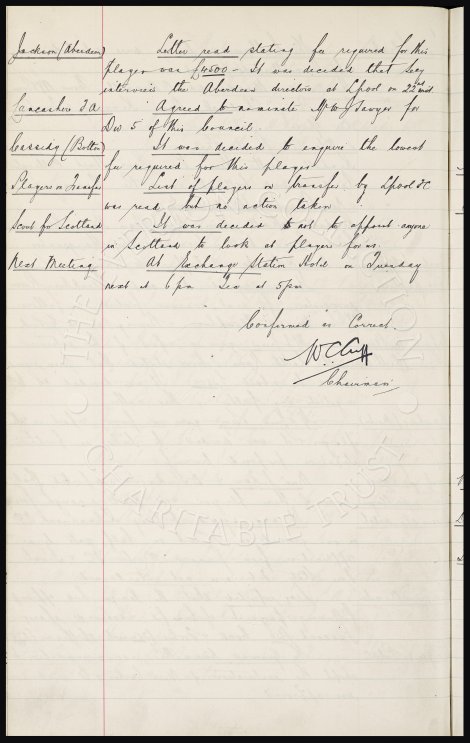 Jackson (Aberdeen) Letter read stating fee required for this
player was £4500 - It was decided that Secy
interview the Aberdeen directors at Lpool on 22nd inst
Lancashire F.A. Agreed to nominate Mr W J Sawyer for
Div 5 of this Council.
Cassidy (Bolton) It was decided to enquire the lowest
fee required for this player
Players on Transfer List of players on transfer by Lpool FC
was read, but no action taken
Scout for Scotland It was decided not to appoint anyone
in Scotland to look at players for us.
Next Meeting At Exchange Station Hotel on Tuesday
next at 6pm Tea at 5pm
Confirmed as Correct.
W.C. Cuff
Chairman
CHARITABLE TRUST